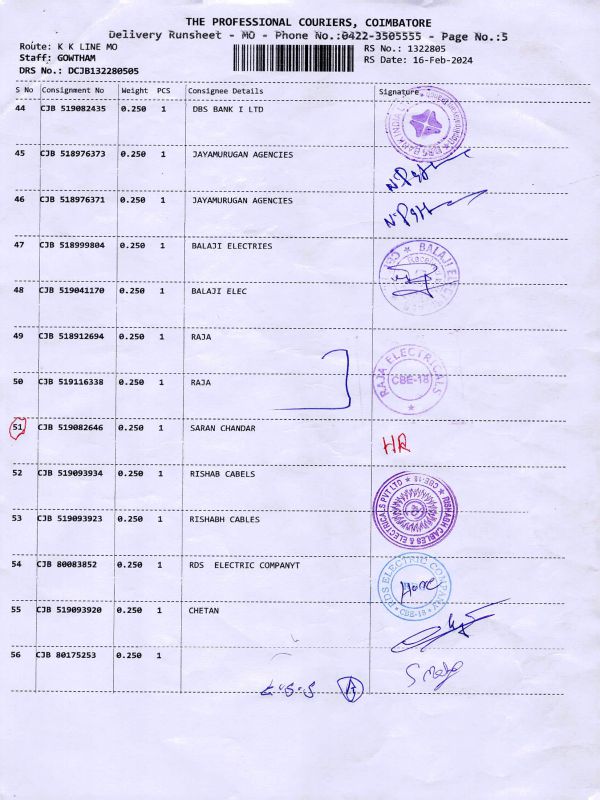 THE PROFESSIONAL COURIERS, COIMBATORE
Delivery Runsheet - MO - Phone No.:0422-3505555 - Page No.:5
Route: K K LINE MO
RS No.: 1322805
Staff: GOWTHAM
RS Date: 16-Feb-2024
DRS No.: DCJB132280505
S No Consignment No Weight PCS Consignee Details Signature
44 CJB 519082435 0.250 1 DBS BANK I LTD
45 CJB 518976373 0.250 1 JAYAMURUGAN AGENCIES
46 CJB 518976371 0.250 1 JAYAMURUGAN AGENCIES
47 CJB 518999804 0.250 1 BALAJI ELECTRIES
48 CJB 519041170 0.250 1 BALAJI ELEC
49 CJB 518912694 0.250 1 RAJA
RAJA ELECTRICALS
CBE-18
50 CJB 519116338 0.250 1 RAJA
51 CJB 519082646 0.250 1 SARAN CHANDAR
HR
52 CJB 519093934 0.250 1 RISHAB CABELS
RISHABH CABLES & ELECTRICALS PVT LTD CBE-18
53 CJB 519093923 0.250 1 RISHABH CABLES
54 CJB 80083852 0.250 1 RDS ELECTRIC COMPANYT
RDS ELECTRIC COMPANY
CBE-18
55 CJB 519093920 0.250 1 CHETAN
56 CJB 80175253 0.250 1